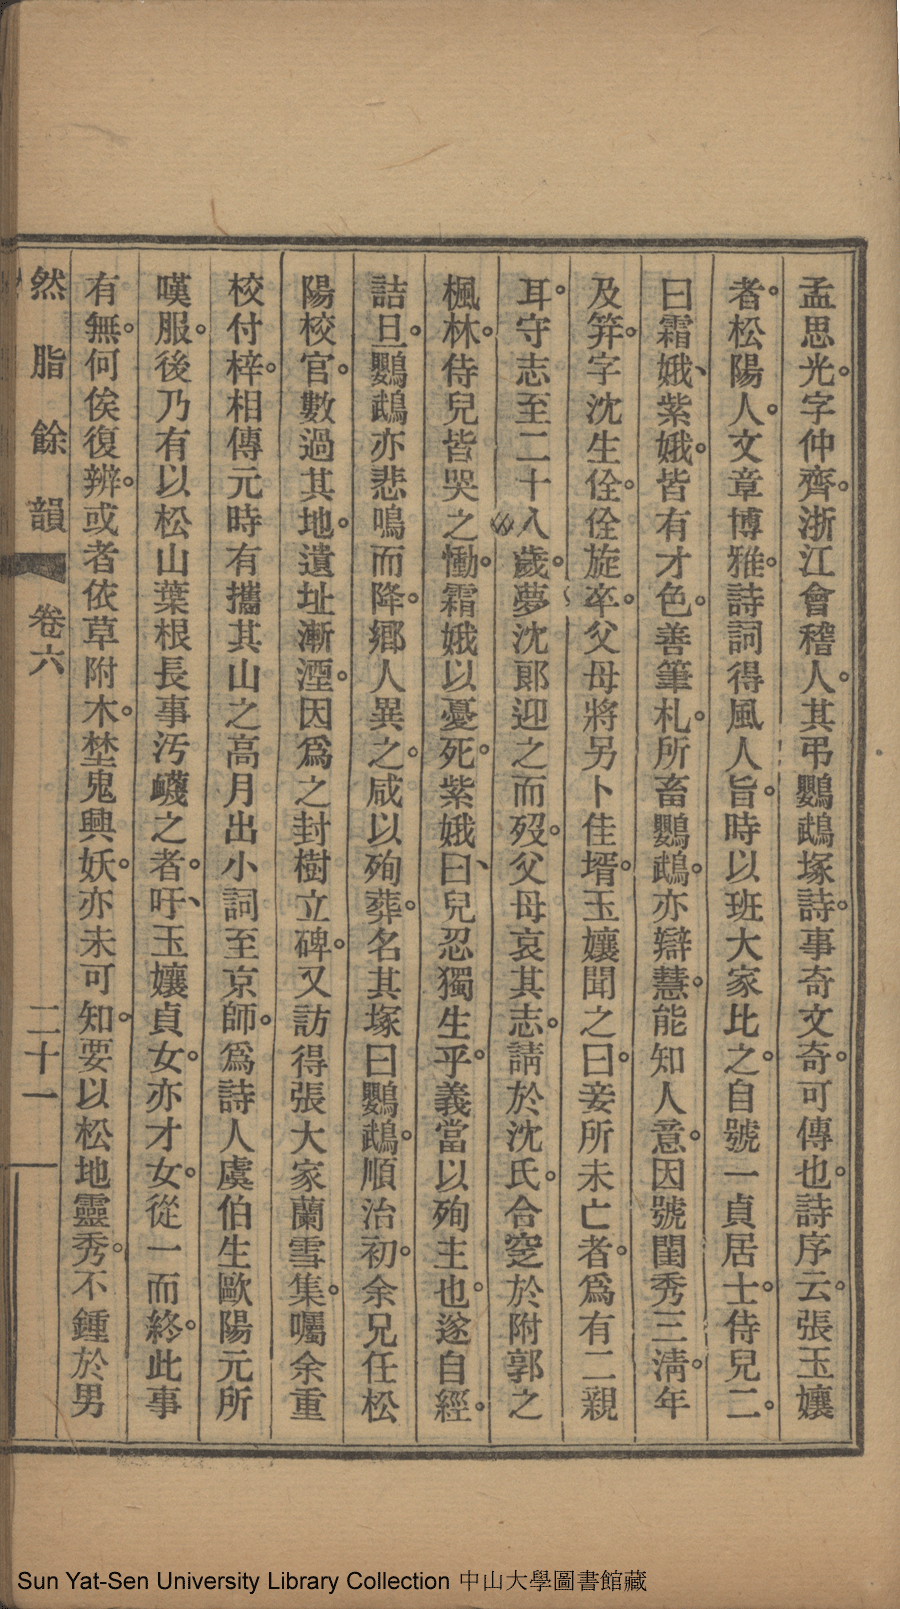 孟思光。字仲齊。浙江會稽人。其弔鸚鵡塚詩。事奇文奇。可傳也。詩序云。張玉孃
者。松陽人。文章博雅。詩詞得風人旨。時以班大家比之。自號一貞居士。侍兒二。
曰霜娥、紫娥。皆有才色。善筆札。所畜鸚鵡。亦辯慧。能知人意。因號閨秀三淸。年
及笄。字沈生佺。佺旋卒。父母將另卜佳壻。玉孃聞之曰。妾所未亡者。爲有二親
耳。守志至二十八歲。夢沈郎迎之而歿。父母哀其志。請於沈氏。合窆於附郭之
楓林。侍兒皆哭之慟。霜娥以憂死。紫娥曰、兒忍獨生乎。義當以殉主也。遂自經。
詰旦。鸚鵡亦悲鳴而降。鄉人異之。咸以殉葬。名其塚曰鸚鵡。順治初。余兄任松
陽校官。數過其地。遺址漸湮。因爲之封樹立碑。又訪得張大家蘭雪集。囑余重
校付梓。相傳元時有攜其山之高月出小詞至京師。爲詩人虞伯生歐陽元所
嘆服。後乃有以松山葉根長事汚衊之者。吁、玉孃貞女。亦才女。從一而終。此事
有無。何俟復辨。或者依草附木。埜鬼興妖。亦未可知。要以松地靈秀。不鍾於男
然脂餘韻 卷六 二十一
Sun Yat-Sen University Library Collection 中山大學圖書館藏